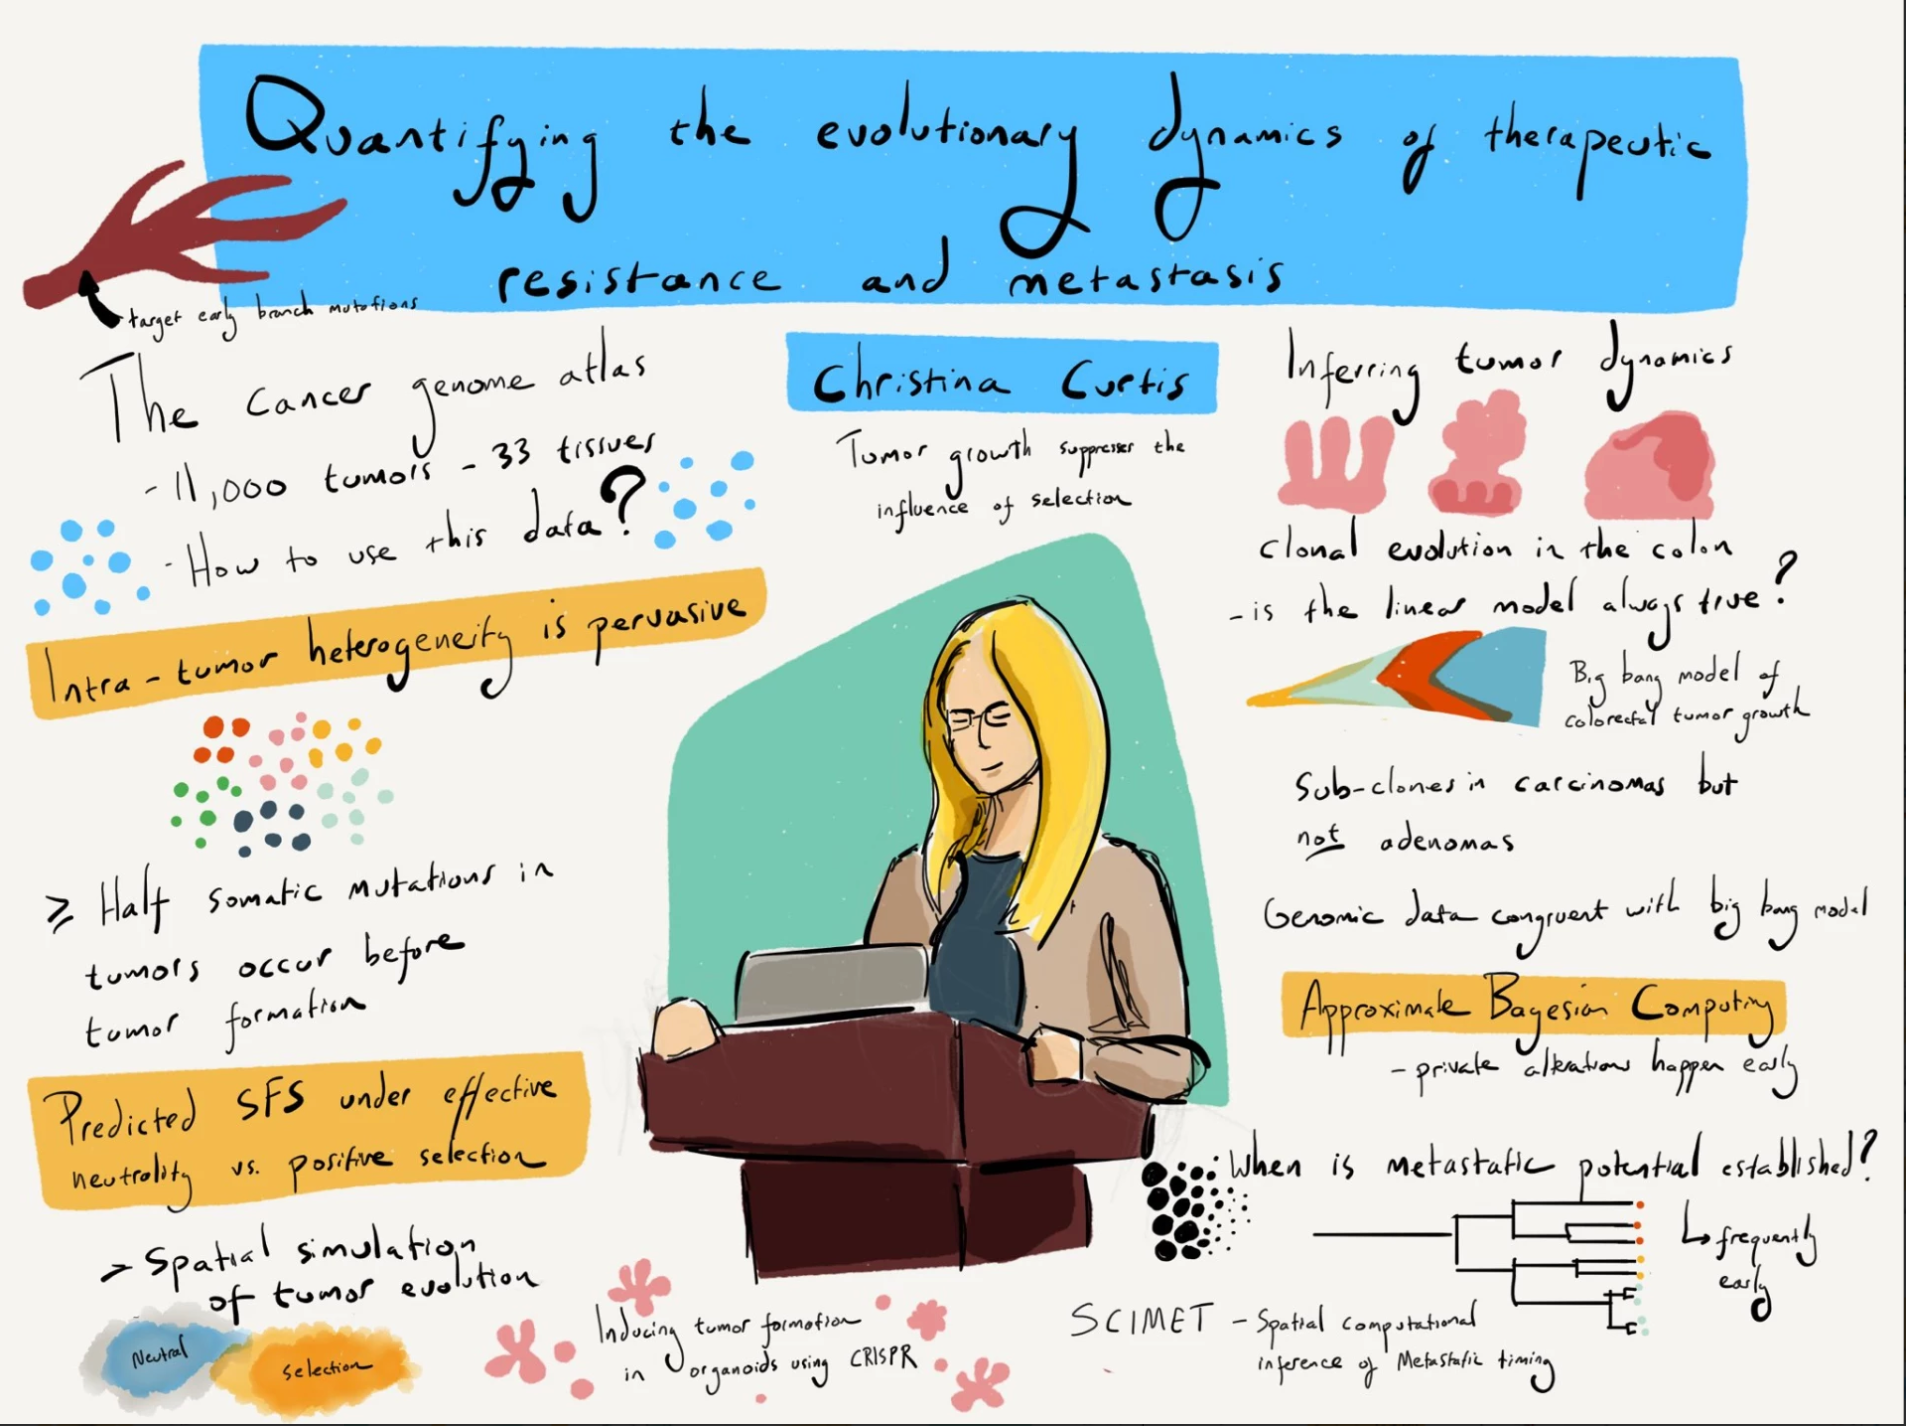 Quantifying the evolutionary dynamics of therapeutic
resistance and metastasis
target early branch mutations
The Cancer genome atlas
- 11,000 tumors - 33 tissues
- How to use this data?
Intra-tumor heterogeneity is pervasive
≥ Half somatic mutations in
tumors occur before
tumor formation
Predicted SFS under effective
neutrality vs. positive selection
> Spatial simulation
of tumor evolution
Neutral
Selection
Christina Curtis
Tumor growth suppresses the
influence of selection
Inducing tumor formation
in organoids using CRISPR
Inferring tumor dynamics
Clonal evolution in the colon
- is the linear model always true?
Big bang model of
colorectal tumor growth
Sub-clones in carcinomas but
not adenomas
Genomic data congruent with big bang model
Approximate Bayesian Computing
- private alterations happen early
When is metastatic potential established?
frequently
early
SCIMET - Spatial computational
inference of Metastatic timing